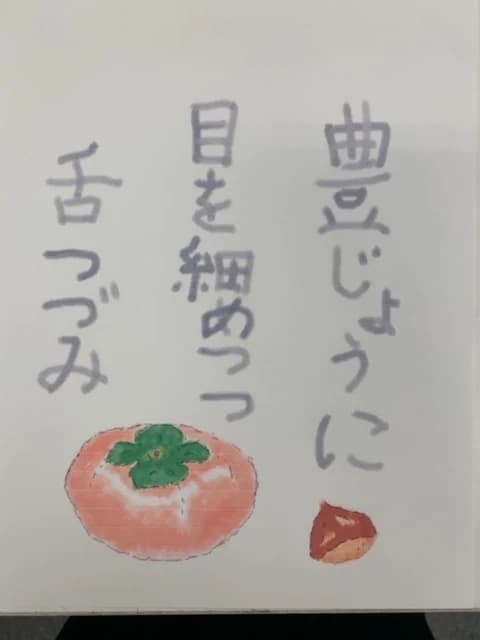 豊じょうに
目を細めつつ
舌つづみ